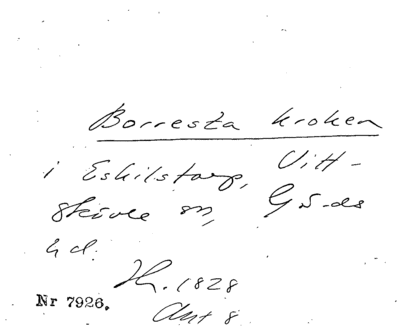 Borresta kroken
i Eskilstorp, Vitt-
skövle sn, Gä-ds
hd.
Hr. 1828
Akt 8
Nr 7926.